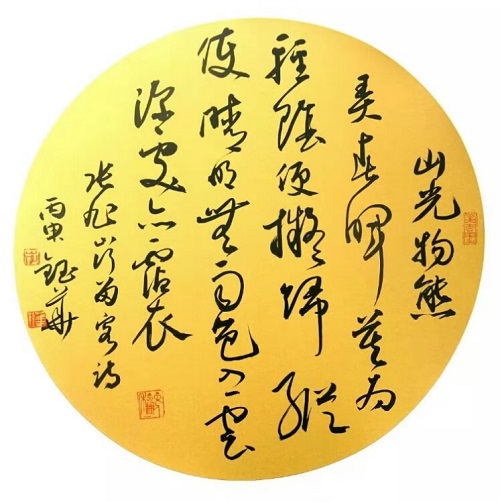 山光物態
弄春暉莫為
輕陰便擬歸縱
使晴明無雨色入雲
深處亦霑衣
張旭山行留客詩
丙申鈺華